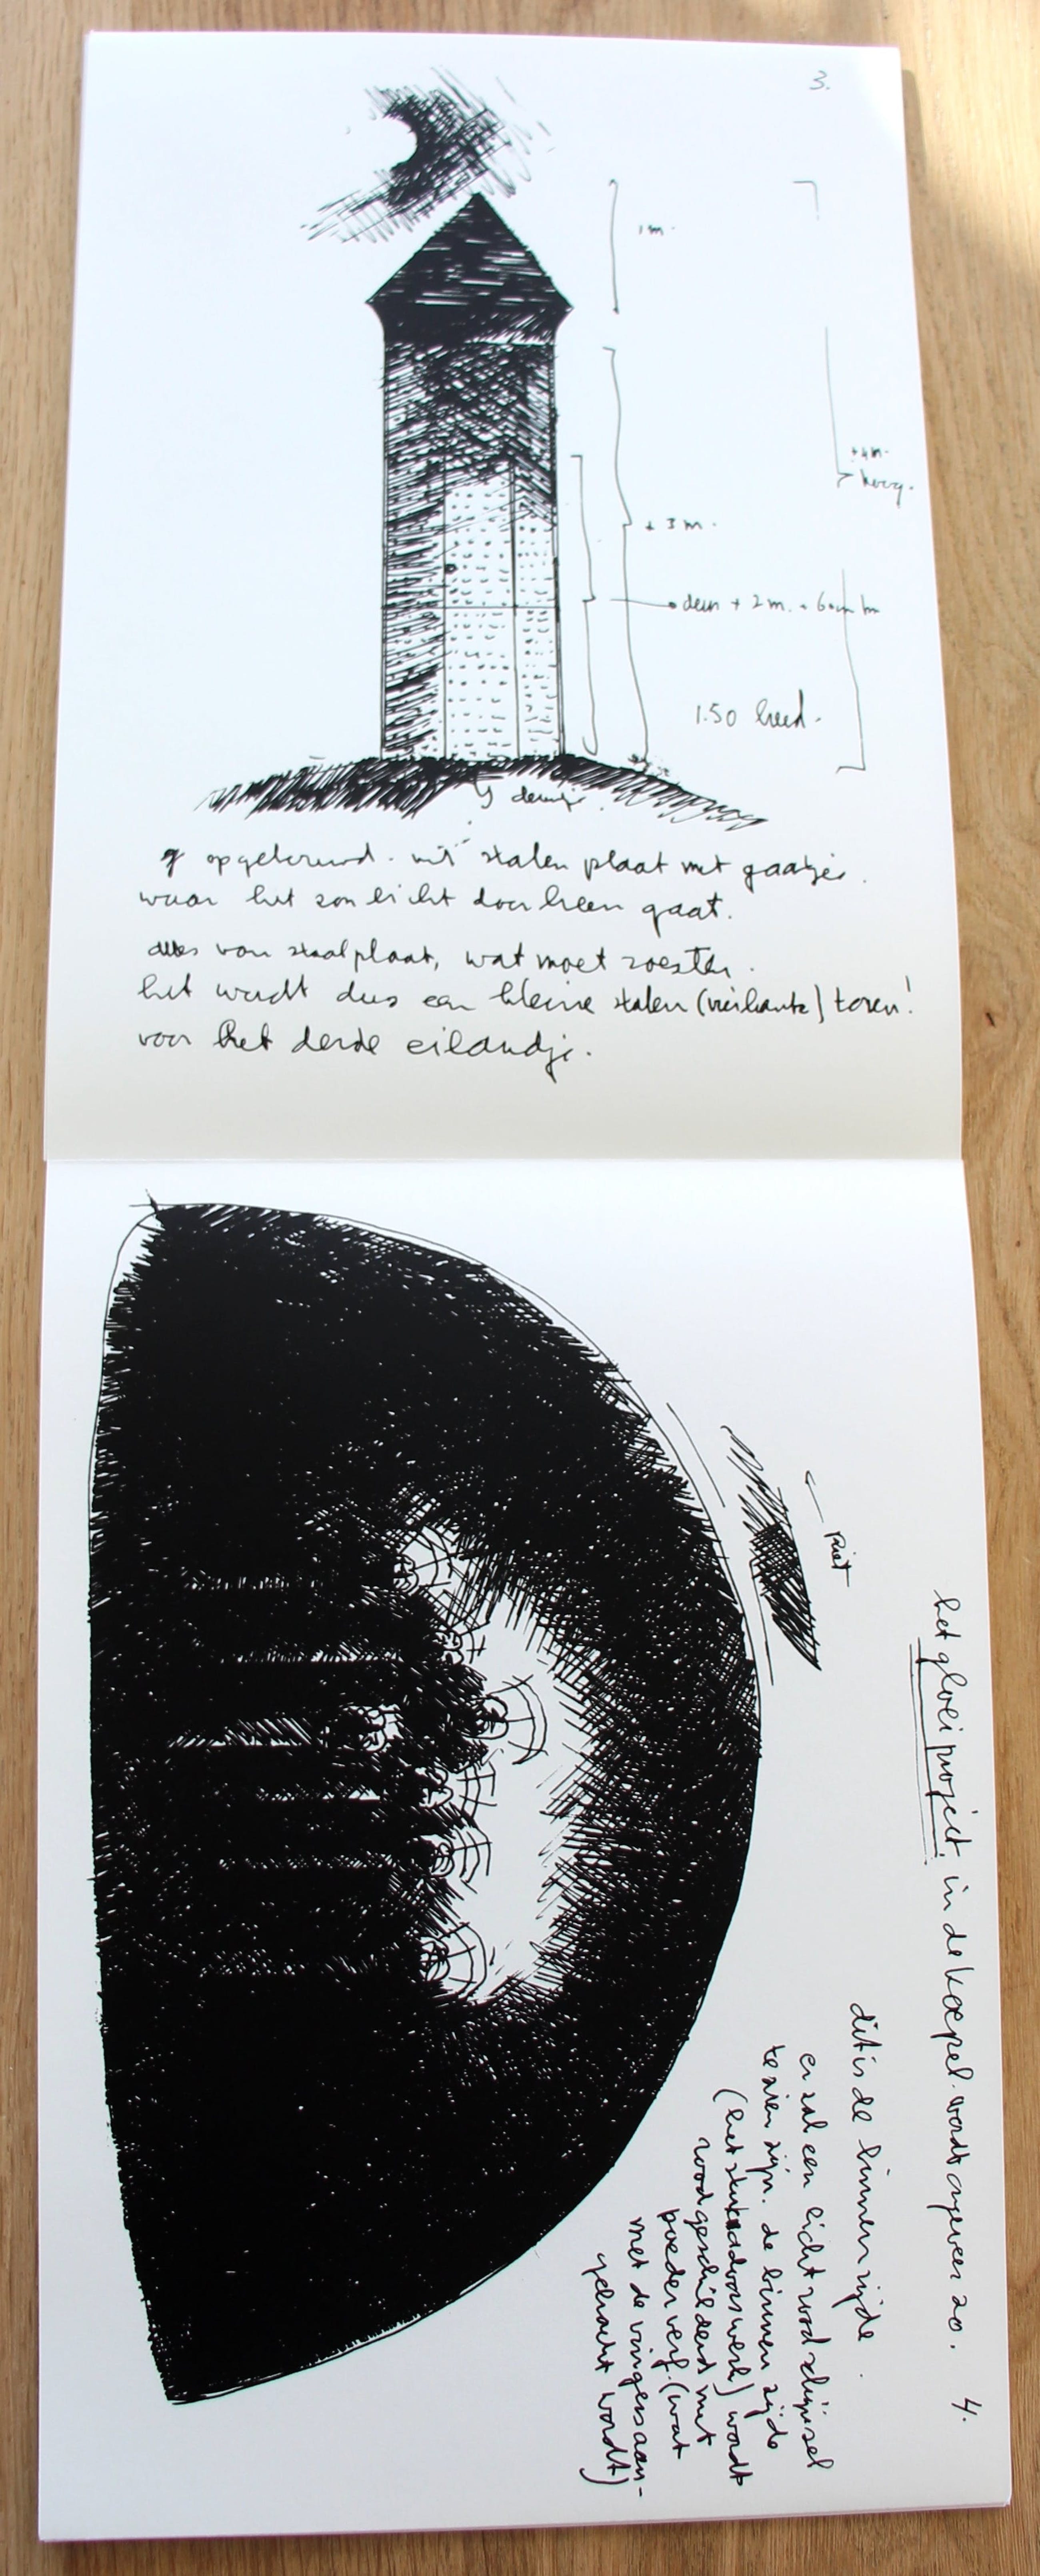 3.
1 m.
± 4 m.
hoog.
± 3 m.
deur ± 2 m.
1.50 breed.
deurtje.
opgebouwd. uit stalen plaat met gaatjes.
waar het zonlicht doorheen gaat.
alles van staalplaat, wat moet roesten.
het wordt dus een kleine stalen (vierkante) toren!
voor het derde eilandje.
4.
het gloeiproject. in de koepel. wordt ongeveer zo.
Riet
dit is de binnenzijde.
er zal een licht rood schijnsel
te zien zijn. de binnenzijde
(het stukadoorswerk) wordt
rood geschilderd met
poederverf. (wat
met de vingers aan-
gebracht wordt)